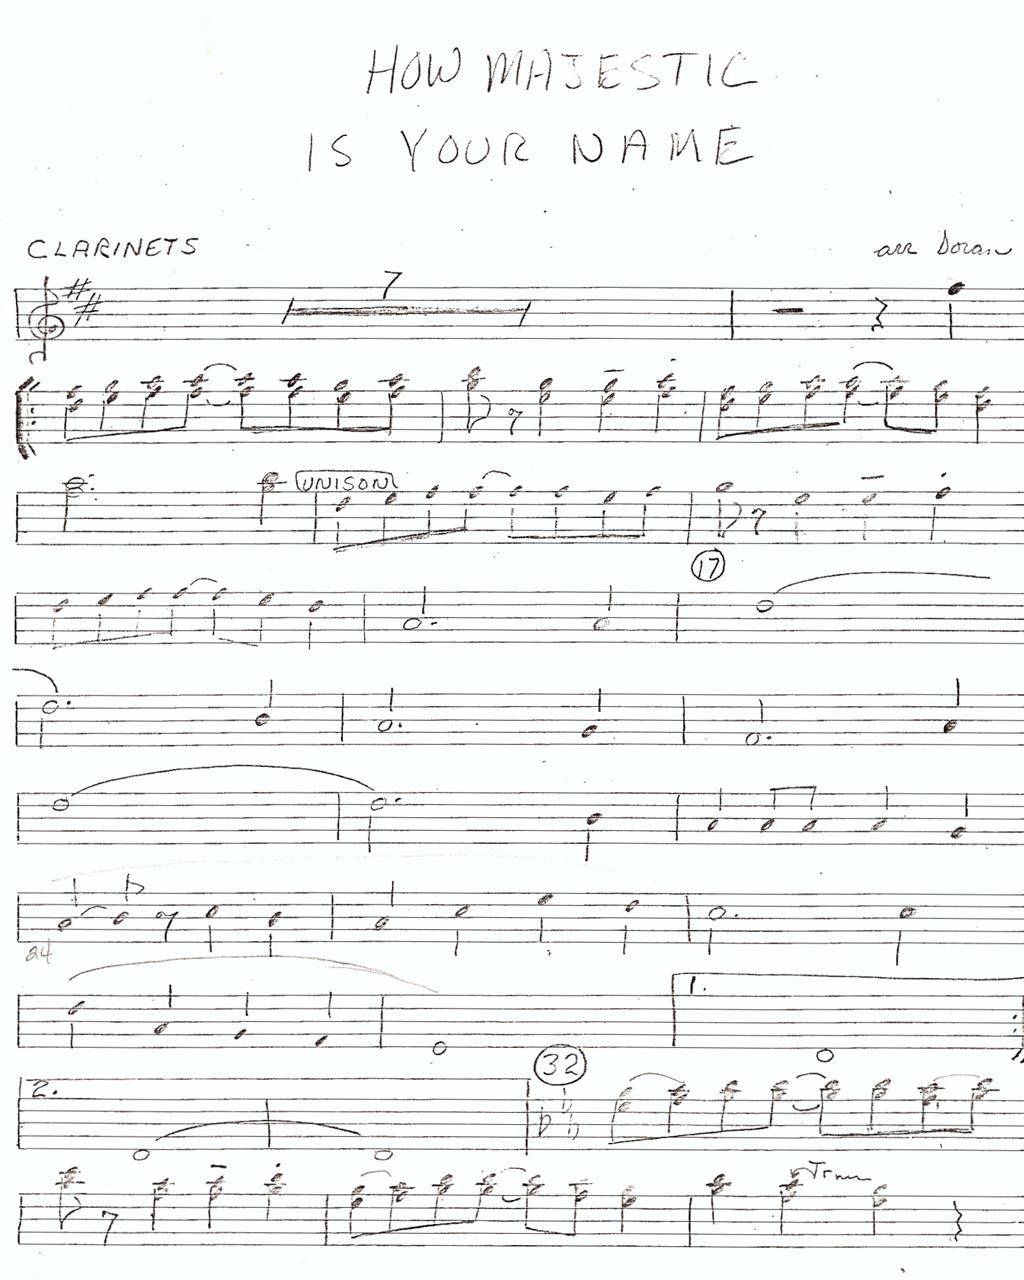 HOW MAJESTIC
IS YOUR NAME
CLARINETS
arr Doran
7
UNISON
17
24
1.
2.
32